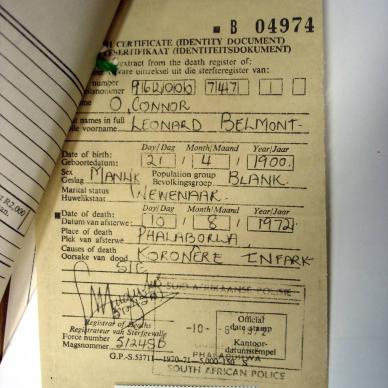 B 04974
CERTIFICATE (IDENTITY DOCUMENT)
SERTIFIKAAT (IDENTITEITSDOKUMENT)
extract from the death register of:
ware uittreksel uit die sterfteregister van:
number
7471
1
O.CONNOR
names in full
voorname
LEONARD BELMONT
Day/Dag Month/Maand Year/Jaar
Date of birth:
Geboortedatum:
21 4 1900.
Sex
Geslag MANLIK
Population group
Bevolkingsgroep BLANK.
Marital status
Huwelikstaat WEWENAAR.
Day/Dag Month/Maand Year/Jaar
Date of death:
Datum van afsterwe:
10 8 1972
Place of death
Plek van afsterwe PHALABORWA
Causes of death
Oorsake van dood KORONÊRE INFARK-
SIE
SUID-AFRIKAANSE POLISIE
Registrar of Deaths
Registrateur van Sterfgevalle
Force number
Magsnommer
-10-8
Official
date stamp
Kantoor-
datumstempel
G.P.-S.53711—1970-71
PHALABORWA
SOUTH AFRICAN POLICE
R2,000